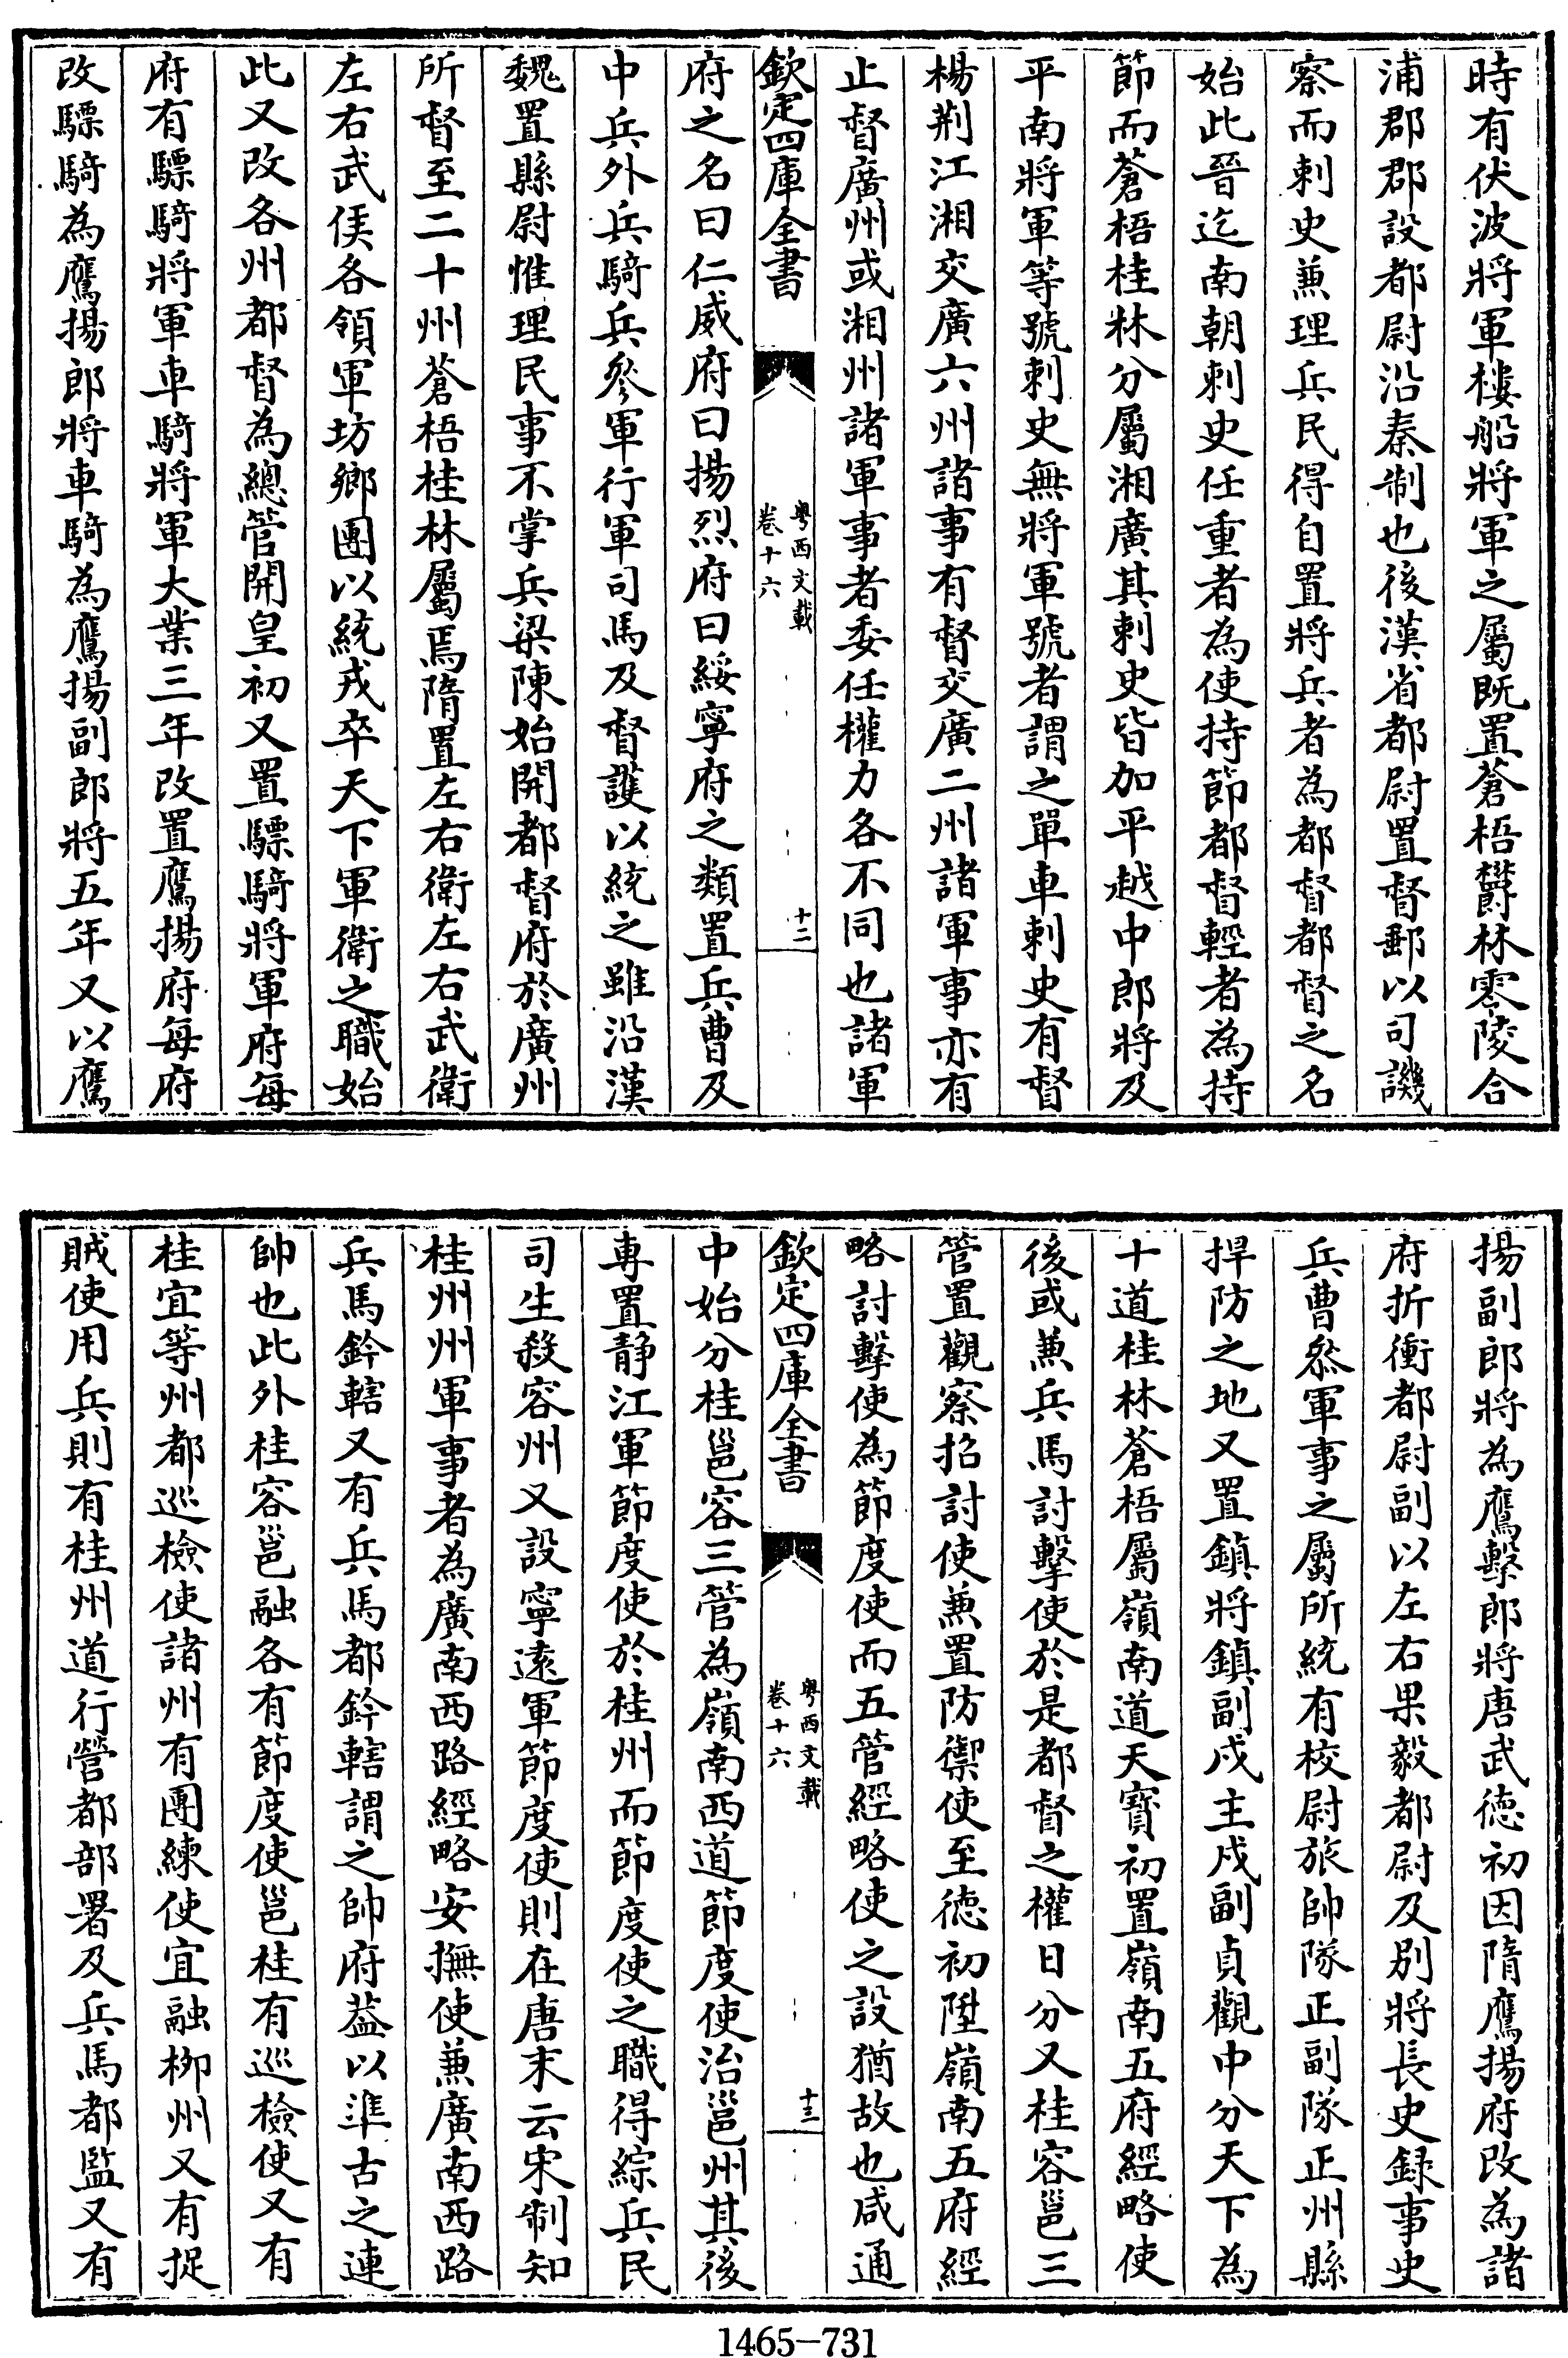 時有伏波將軍樓船將軍之屬既置蒼梧欝林零陵合
浦郡郡設都尉沿秦制也後漢省都尉置督郵以司譏
察而刺史兼理兵民得自置將兵者為都督都督之名
始此晉迄南朝刺史任重者為使持節都督輕者為持
節而蒼梧桂林分屬湘廣其刺史皆加平越中郎將及
平南將軍等號刺史無將軍號者謂之單車刺史有督
楊荆江湘交廣六州諸事有督交廣二州諸軍事亦有
止督廣州或湘州諸軍事者委任權力各不同也諸軍
欽定四庫全書
粤西文載
卷十六
十二
府之名曰仁威府曰揚烈府曰綏寧府之類置兵曹及
中兵外兵騎兵叅軍行軍司馬及督護以統之雖沿漢
魏置縣尉惟理民事不掌兵梁陳始開都督府於廣州
所督至二十州蒼梧桂林屬焉隋置左右衛左右武衛
左右武侯各領軍坊鄉團以統戎卒天下軍衛之職始
此又改各州都督為總管開皇初又置驃騎將軍府每
府有驃騎將軍車騎將軍大業三年改置鷹揚府每府
改驃騎為鷹揚郎將車騎為鷹揚副郎將五年又以鷹
揚副郎將為鷹擊郎將唐武德初因隋鷹揚府改為諸
府折衝都尉副以左右果毅都尉及別將長史録事史
兵曹叅軍事之屬所統有校尉旅帥隊正副隊正州縣
捍防之地又置鎮將鎮副戍主戍副貞觀中分天下為
十道桂林蒼梧屬嶺南道天寳初置嶺南五府經略使
後或兼兵馬討擊使於是都督之權日分又桂容邕三
管置觀察招討使兼置防禦使至德初陞嶺南五府經
略討擊使為節度使而五管經略使之設猶故也咸通
欽定四庫全書
粤西文載
卷十六
十三
中始分桂邕容三管為嶺南西道節度使治邕州其後
專置静江軍節度使於桂州而節度使之職得綜兵民
司生殺容州又設寧遠軍節度使則在唐末云宋制知
桂州州軍事者為廣南西路經略安撫使兼廣南西路
兵馬鈐轄又有兵馬都鈐轄謂之帥府葢以準古之連
帥也此外桂容邕融各有節度使邕桂有巡檢使又有
桂宜等州都巡檢使諸州有團練使宜融柳州又有捉
賊使用兵則有桂州道行營都部署及兵馬都監又有
1465-731